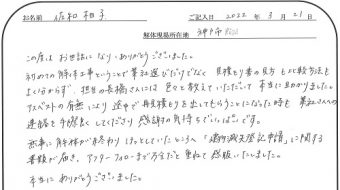 お名前 佐和 和子 ご記入日 2022年 3月 21日
解体現場所在地 神戸市
この度は お世話になり、ありがとうございました。
初めての解体工事ということで業者選びだけでなく 見積もり書の見方も比較方法も
よくわからず、担当の長橋さんには 色々と教えていただいて本当に助かりました。
アスベストの有無により 途中で再見積もりを出してもらうことになった時も 業社さんへの
連絡を手際良くしてくださり 感謝の気持ちでいっぱいです。
無事に解体が終わり ほっとしていたところへ「建物滅失登記申請」に関する
書類が届き、アフターフォローまで万全だと 重ねて感服いたしました。
本当に ありがとうございました。